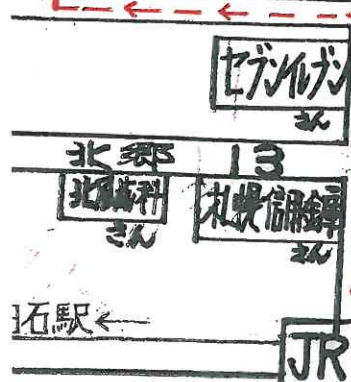 セブンイレブン
さん
北郷 13
北郷歯科
さん
札幌信用金庫
さん
石駅←
JR